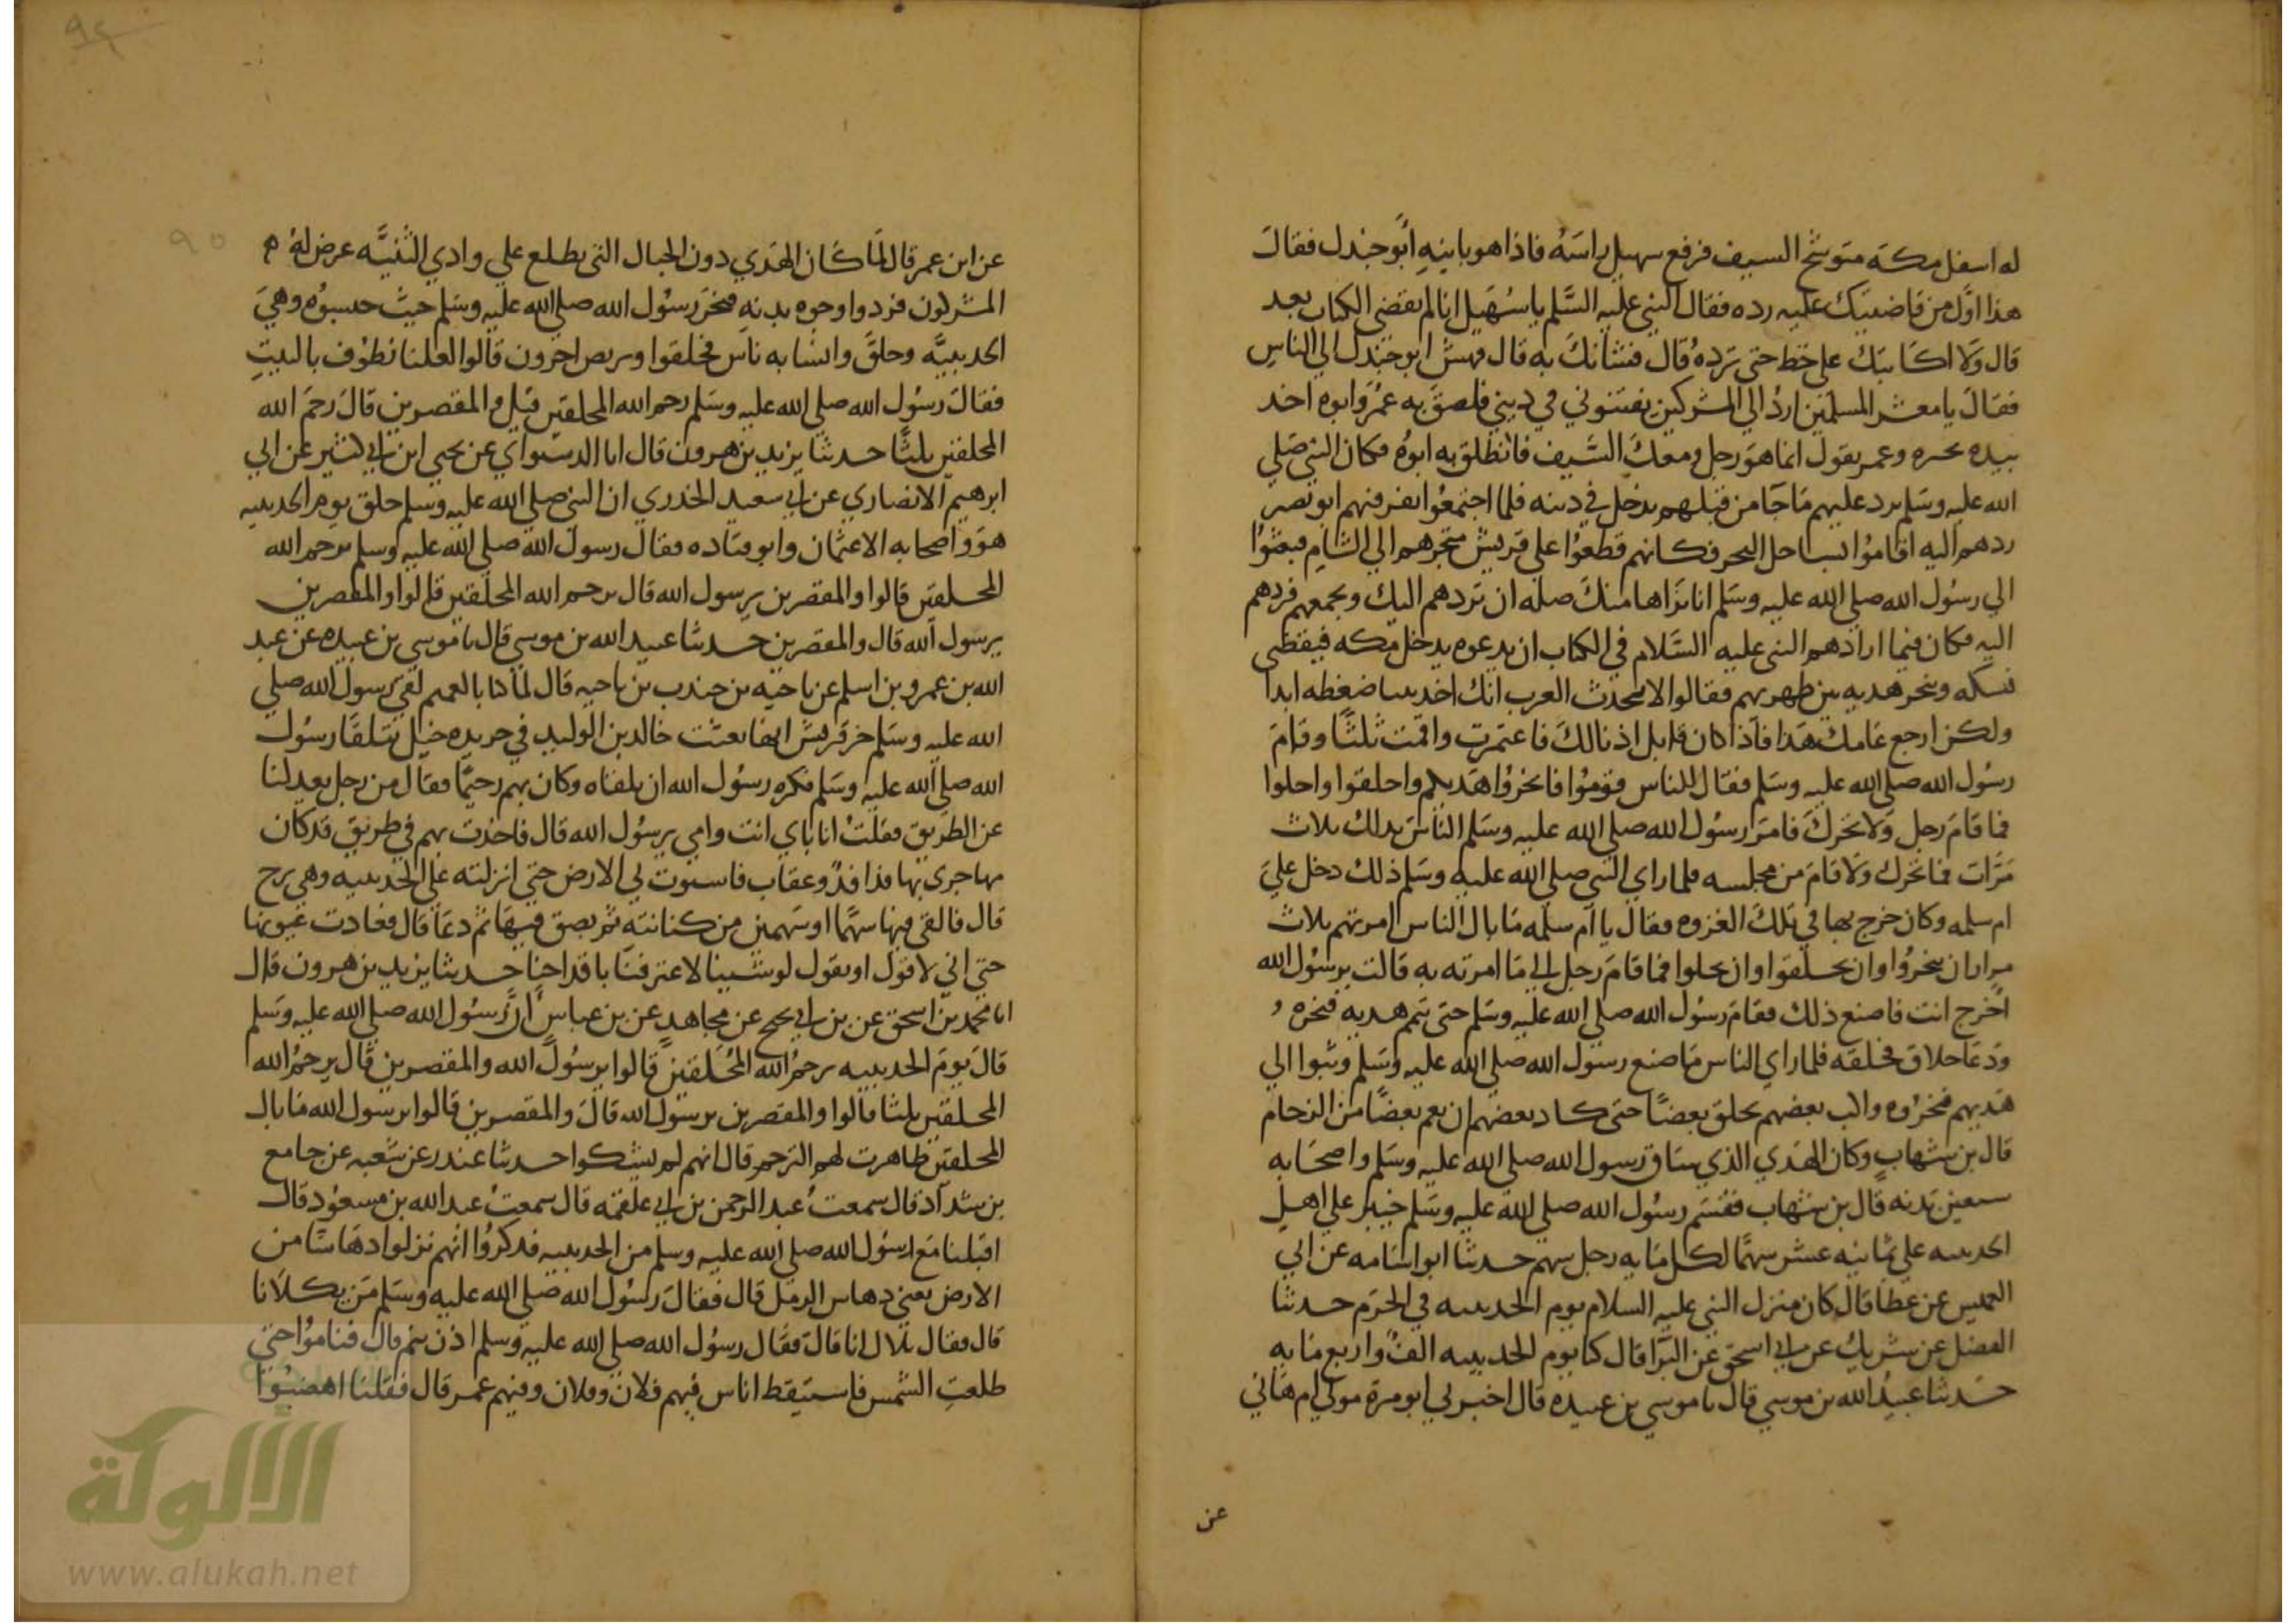 له اسفل مكة متوشح السيف فرفع سهيل راسه فاذا هو بابنه أبو جندل فقال
هذا اول من قاضيتك عليه رده فقال النبي عليه السلم يا سهيل انا لم نقضي الكتاب بعد
قال ولا اكاتبك على خط حتى ترده قال فشانك به قال فهش ابو جندل الي الناس
فقال يا معشر المسلمين اردّ الي المشركين يفتنوني في ديني فلصق به عمر وابوه اخذ
بيده يجره وعمر يقول انما هو رجل ومعك السيف فانطلق به ابوه فكان النبي صلي
الله عليه وسلم يرد عليهم ما جا من قبلهم يدخل في دينه فلما اجتمعوا نفر فيهم ابو نصر
ردهم اليه اقاموا بساحل البحر فكانهم قطعوا علي قريش متجرهم الي الشام فبعثوا
الي رسول الله صلي الله عليه وسلم انا نراها منك صله ان تردهم اليك وتجمعهم فردهم
اليه فكان فيما ارادهم النبي عليه السلام في الكتاب ان يدعوه يدخل مكه فيقضي
نسكه وينحر هديه بين ظهريهم فقالوا لا تتحدث العرب انك اخذتنا ضغطه ابدا
ولكن ارجع عامك هذا فاذا كان قابل اذنا لك فاعتمرت واقمت ثلثا وقام
رسول الله صلي الله عليه وسلم فقال للناس قوموا فانحروا هديكم واحلقوا واحلوا
فما قام رجل ولا تحرك فامر رسول الله صلي الله عليه وسلم الناس بذلك ثلاث
مرات فما تحرك ولا قام من مجلسه فلما راي النبي صلي الله عليه وسلم ذلك دخل علي
ام سلمه وكان خرج بها في تلك الغزوه فقال يا ام سلمه ما بال الناس امرتهم ثلاث
مرار ان ينحروا وان يحلقوا وان يحلوا فما قام رجل الي ما امرته به قالت يرسول الله
اخرج انت فاصنع ذلك فقام رسول الله صلي الله عليه وسلم حتى يتمم هديه فنحره
ودعا حلاق فحلقه فلما راي الناس ما صنع رسول الله صلي الله عليه وسلم وثبوا الي
هديهم فنحروه واكب بعضهم يحلق بعضا حتى كاد بعضهم ان يغم بعضا من الزحام
قال بن شهاب وكان الهدي الذي ساق رسول الله صلي الله عليه وسلم واصحابه
سبعين بدنه قال بن شهاب فقسم رسول الله صلي الله عليه وسلم خيبر علي اهل
الحديبيه علي ثمانيه عشر سهما لكل مايه رجل سهم حدثنا ابو اسامه عن ابي
العميس عن عطا قال كان منزل النبي عليه السلام يوم الحديبيه في الحرم حدثنا
الفضل عن شريك عن ابي اسحق عن البرا قال كنا يوم الحديبيه الف واربع مايه
حدثنا عبيد الله بن موسي قال نا موسي بن عبيده قال اخبرني ابو مرة مولي ام هاني
عن
عن ابن عمر قال لما كان الهدي دون الجبال التي يطلع علي وادي الثنيه عرض له
المشركون فردوا وجوه بدنه فنحر رسول الله صلي الله عليه وسلم حيث حبسوه وهي
الحديبيه وحلق وائتسا به ناس فحلقوا وتربص اخرون قالوا لعلنا نطوف بالبيت
فقال رسول الله صلي الله عليه وسلم رحم الله المحلقين قيل والمقصرين قال رحم الله
المحلقين ثلثا حدثنا يزيد بن هرون قال انا الدستواي عن يحيي ابن ابي كثير عن ابي
ابرهيم الانصاري عن ابي سعيد الخدري ان النبي صلي الله عليه وسلم حلق يوم الحديبيه
هو واصحابه الا عثمان وابو قتاده فقال رسول الله صلي الله عليه وسلم يرحم الله
المحلقين قالوا والمقصرين يرسول الله قال يرحم الله المحلقين قالوا والمقصرين
يرسول الله قال والمقصرين حدثنا عبيد الله بن موسي قال نا موسي بن عبيده عن عبد
الله بن عمرو بن اسلم عن ناجيه بن جندب بن ناجيه قال لما كنا بالغميم لقي رسول الله صلي
الله عليه وسلم خبر قريش انها بعثت خالد بن الوليد في جريده خيل يتلقا رسول
الله صلي الله عليه وسلم فكره رسول الله ان يلقاه وكان بهم رحيما فقال من رجل يعدلنا
عن الطريق فقلت انا بابي انت وامي يرسول الله قال فاخذت بهم في طريق قد كان
مهاجري بها فدافد وعقاب فاستوت لي الارض حتى انزلته علي الحديبيه وهي نزح
قال فالقي فيها سهما او سهمين من كنانته ثم بصق فيها ثم دعا قال فعادت عيونها
حتى اني لاقول او نقول لو شينا لاغترفنا باقداحنا حدثنا يزيد بن هرون قال
انا محمد بن اسحق عن بن ابي نجيح عن مجاهد عن بن عباس ان رسول الله صلي الله عليه وسلم
قال يوم الحديبيه يرحم الله المحلقين قالوا يرسول الله والمقصرين قال يرحم الله
المحلقين ثلثا قالوا والمقصرين يرسول الله قال والمقصرين قالوا يرسول الله ما بال
المحلقين ظاهرت لهم الترحم قال انهم لم يشكوا حدثنا غندر عن شعبه عن جامع
بن شداد قال سمعت عبد الرحمن بن ابي علقمه قال سمعت عبد الله بن مسعود قال
اقبلنا مع رسول الله صلي الله عليه وسلم من الحديبيه فذكروا انهم نزلوا دهاسا من
الارض يعني دهاس الرمل قال فقال رسول الله صلي الله عليه وسلم من يكلانا
قال فقال بلال انا قال فقال رسول الله صلي الله عليه وسلم اذن ننم قال فناموا حتى
طلعت الشمس فاستيقظ اناس فيهم فلان وفلان وفيهم عمر قال فقلنا اهضبوا
الألوكة
www.alukah.net